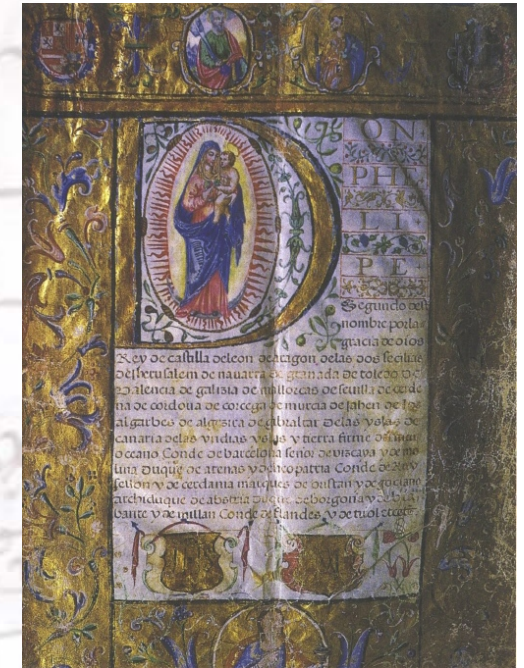 D ON
PHE
LI
PE
Segundo deste
nombre por la
gracia de dios
Rey de castilla de leon de aragon de las dos secilias
de iherusalem de navarra de granada de toledo de
valencia de galizia de mallorcas de sevilla de cerde
na de cordova de corcega de murcia de jahen de los
algarbes de algezira de gibraltar de las yslas de
canaria de las yndias yslas y tierra firme del mar
oceano Conde de barcelona señor de vizcaya y de mo
lina Duque de atenas y de neopatria Conde de Ruy
sellon y de cerdania marques de oristan y de gociano
archiduque de abstria Duque de borgoña y de bra
bante y de millan Conde de flandes y de tirol etcetera